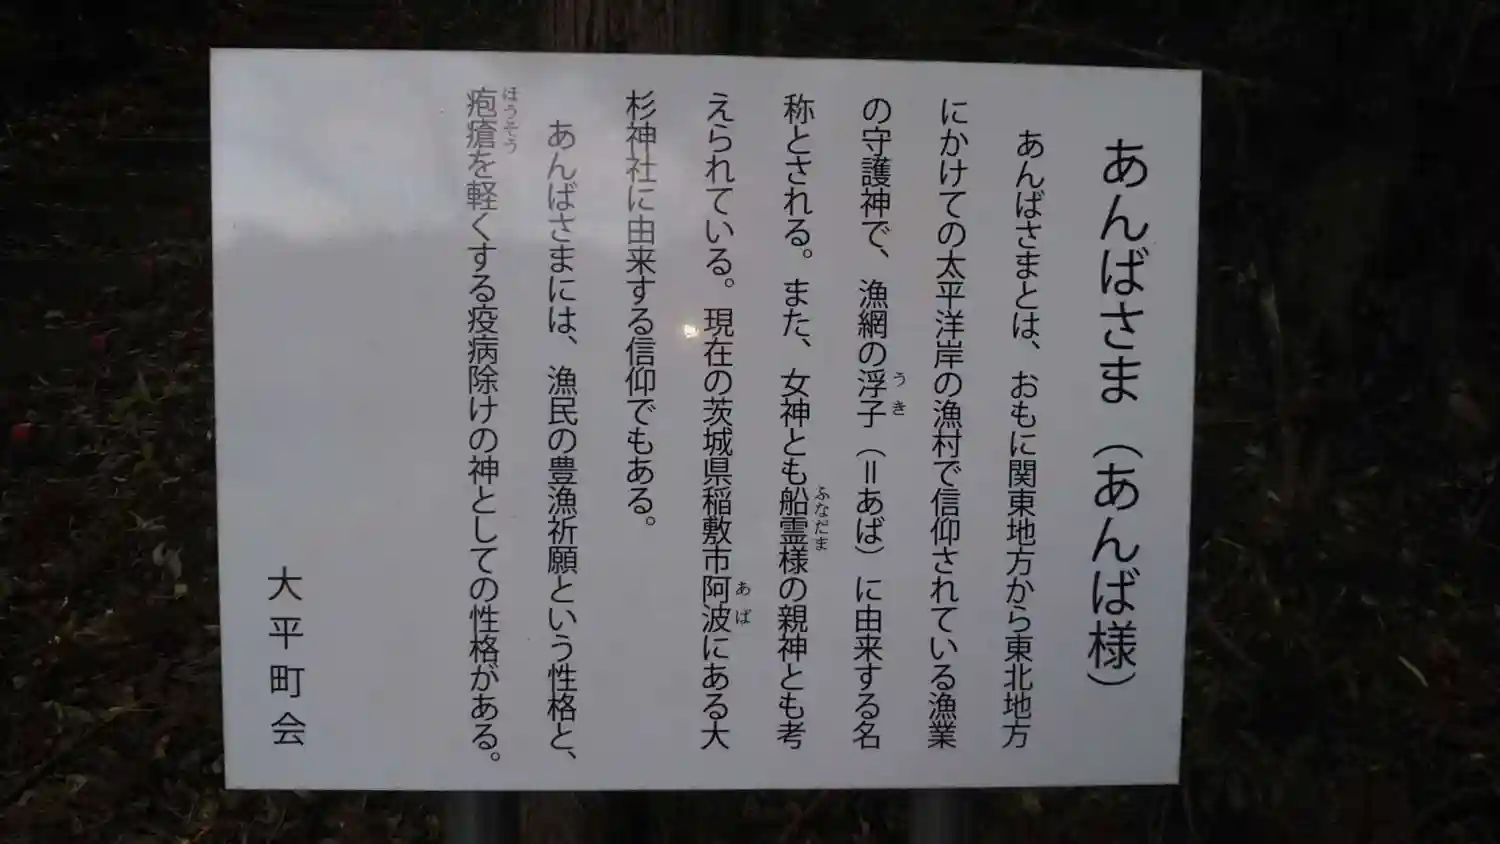 あんばさま（あんば様）
あんばさまとは、おもに関東地方から東北地方
にかけての太平洋岸の漁村で信仰されている漁業
の守護神で、漁網の浮子（＝あば）に由来する名
うき
称とされる。また、女神とも船霊様の親神とも考
ふなだま
えられている。現在の茨城県稲敷市阿波にある大
あば
杉神社に由来する信仰でもある。
あんばさまには、漁民の豊漁祈願という性格と、
疱瘡を軽くする疫病除けの神としての性格がある。
ほうそう
大平町会